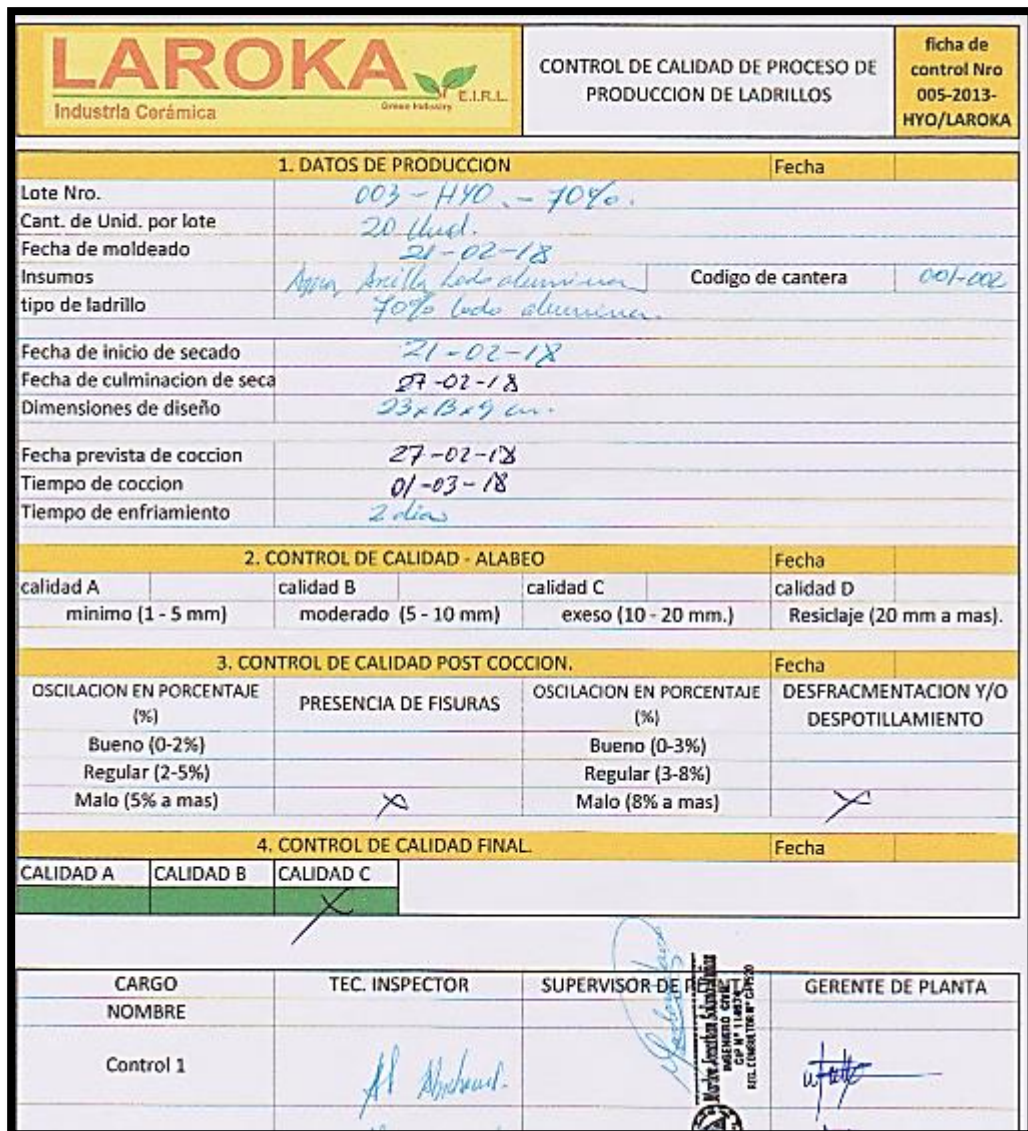 LAROKA
Industria Cerámica
Green Industry E.I.R.L.
CONTROL DE CALIDAD DE PROCESO DE PRODUCCION DE LADRILLOS
ficha de
control Nro
005-2013-
HYO/LAROKA
1. DATOS DE PRODUCCION Fecha
Lote Nro. 003 - HYO. - 70%.
Cant. de Unid. por lote 20 Und.
Fecha de moldeado 21-02-18
Insumos Agua Arcilla Lodo alumina Codigo de cantera 001-002
tipo de ladrillo 70% lodo alumina.
Fecha de inicio de secado 21-02-18
Fecha de culminacion de seca 27-02-18
Dimensiones de diseño 23x13x9 cm.
Fecha prevista de coccion 27-02-18
Tiempo de coccion 01-03-18
Tiempo de enfriamiento 2 dias
2. CONTROL DE CALIDAD - ALABEO Fecha
calidad A calidad B calidad C calidad D
minimo (1 - 5 mm) moderado (5 - 10 mm) exeso (10 - 20 mm.) Resiclaje (20 mm a mas).
3. CONTROL DE CALIDAD POST COCCION. Fecha
OSCILACION EN PORCENTAJE (%) PRESENCIA DE FISURAS OSCILACION EN PORCENTAJE (%) DESFRACMENTACION Y/O DESPOTILLAMIENTO
Bueno (0-2%) Bueno (0-3%)
Regular (2-5%) Regular (3-8%)
Malo (5% a mas) X Malo (8% a mas) X
4. CONTROL DE CALIDAD FINAL. Fecha
CALIDAD A CALIDAD B CALIDAD C
X
CARGO TEC. INSPECTOR SUPERVISOR DE PLANTA GERENTE DE PLANTA
NOMBRE
Control 1
INGENIERO CIVIL